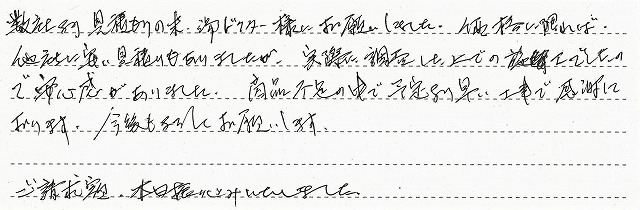 数社より見積もりの末、湯ドクター様にお願いしました。価格に限れば、
他社に安い見積りもありましたが、実際に調査した上での 工でしたの
で安心感がありました。商品不足の中で予定より早い工事で感謝して
おります。今後もよろしくお願いします。
ご請求額、本日振り込みいたしました。